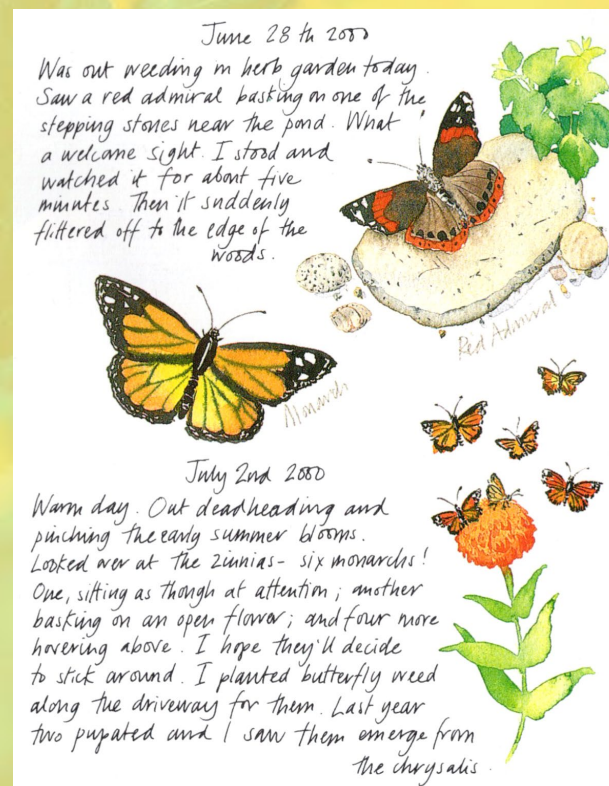 June 28th 2000
Was out weeding in herb garden today.
Saw a red admiral basking on one of the
stepping stones near the pond. What
a welcome sight. I stood and
watched it for about five
minutes. Then it suddenly
flittered off to the edge of the
woods.
Red Admiral
Monarch
July 2nd 2000
Warm day. Out deadheading and
pinching the early summer blooms.
Looked over at the zinnias - six monarchs!
One, sitting as though at attention; another
basking on an open flower; and four more
hovering above. I hope they'll decide
to stick around. I planted butterfly weed
along the driveway for them. Last year
two pupated and I saw them emerge from
the chrysalis.